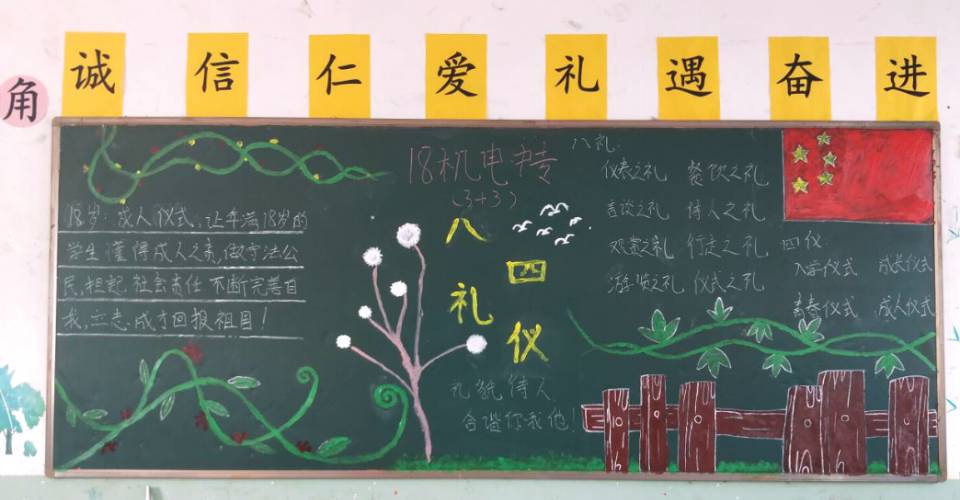 诚信仁爱礼遇奋进
角
18岁：成人仪式，让年满18岁的
学生懂得成人之责，做守法公
民，担起社会责任 不断完善自
我，立志，成才回报祖国！
18机电中专
(3+3)
八礼
四仪
礼貌待人
合谐你我他！
八礼：
仪表之礼 餐饮之礼
言谈之礼 待人之礼
观赏之礼 行走之礼
游览之礼 仪式之礼
四仪
入学仪式 成长仪式
青春仪式 成人仪式